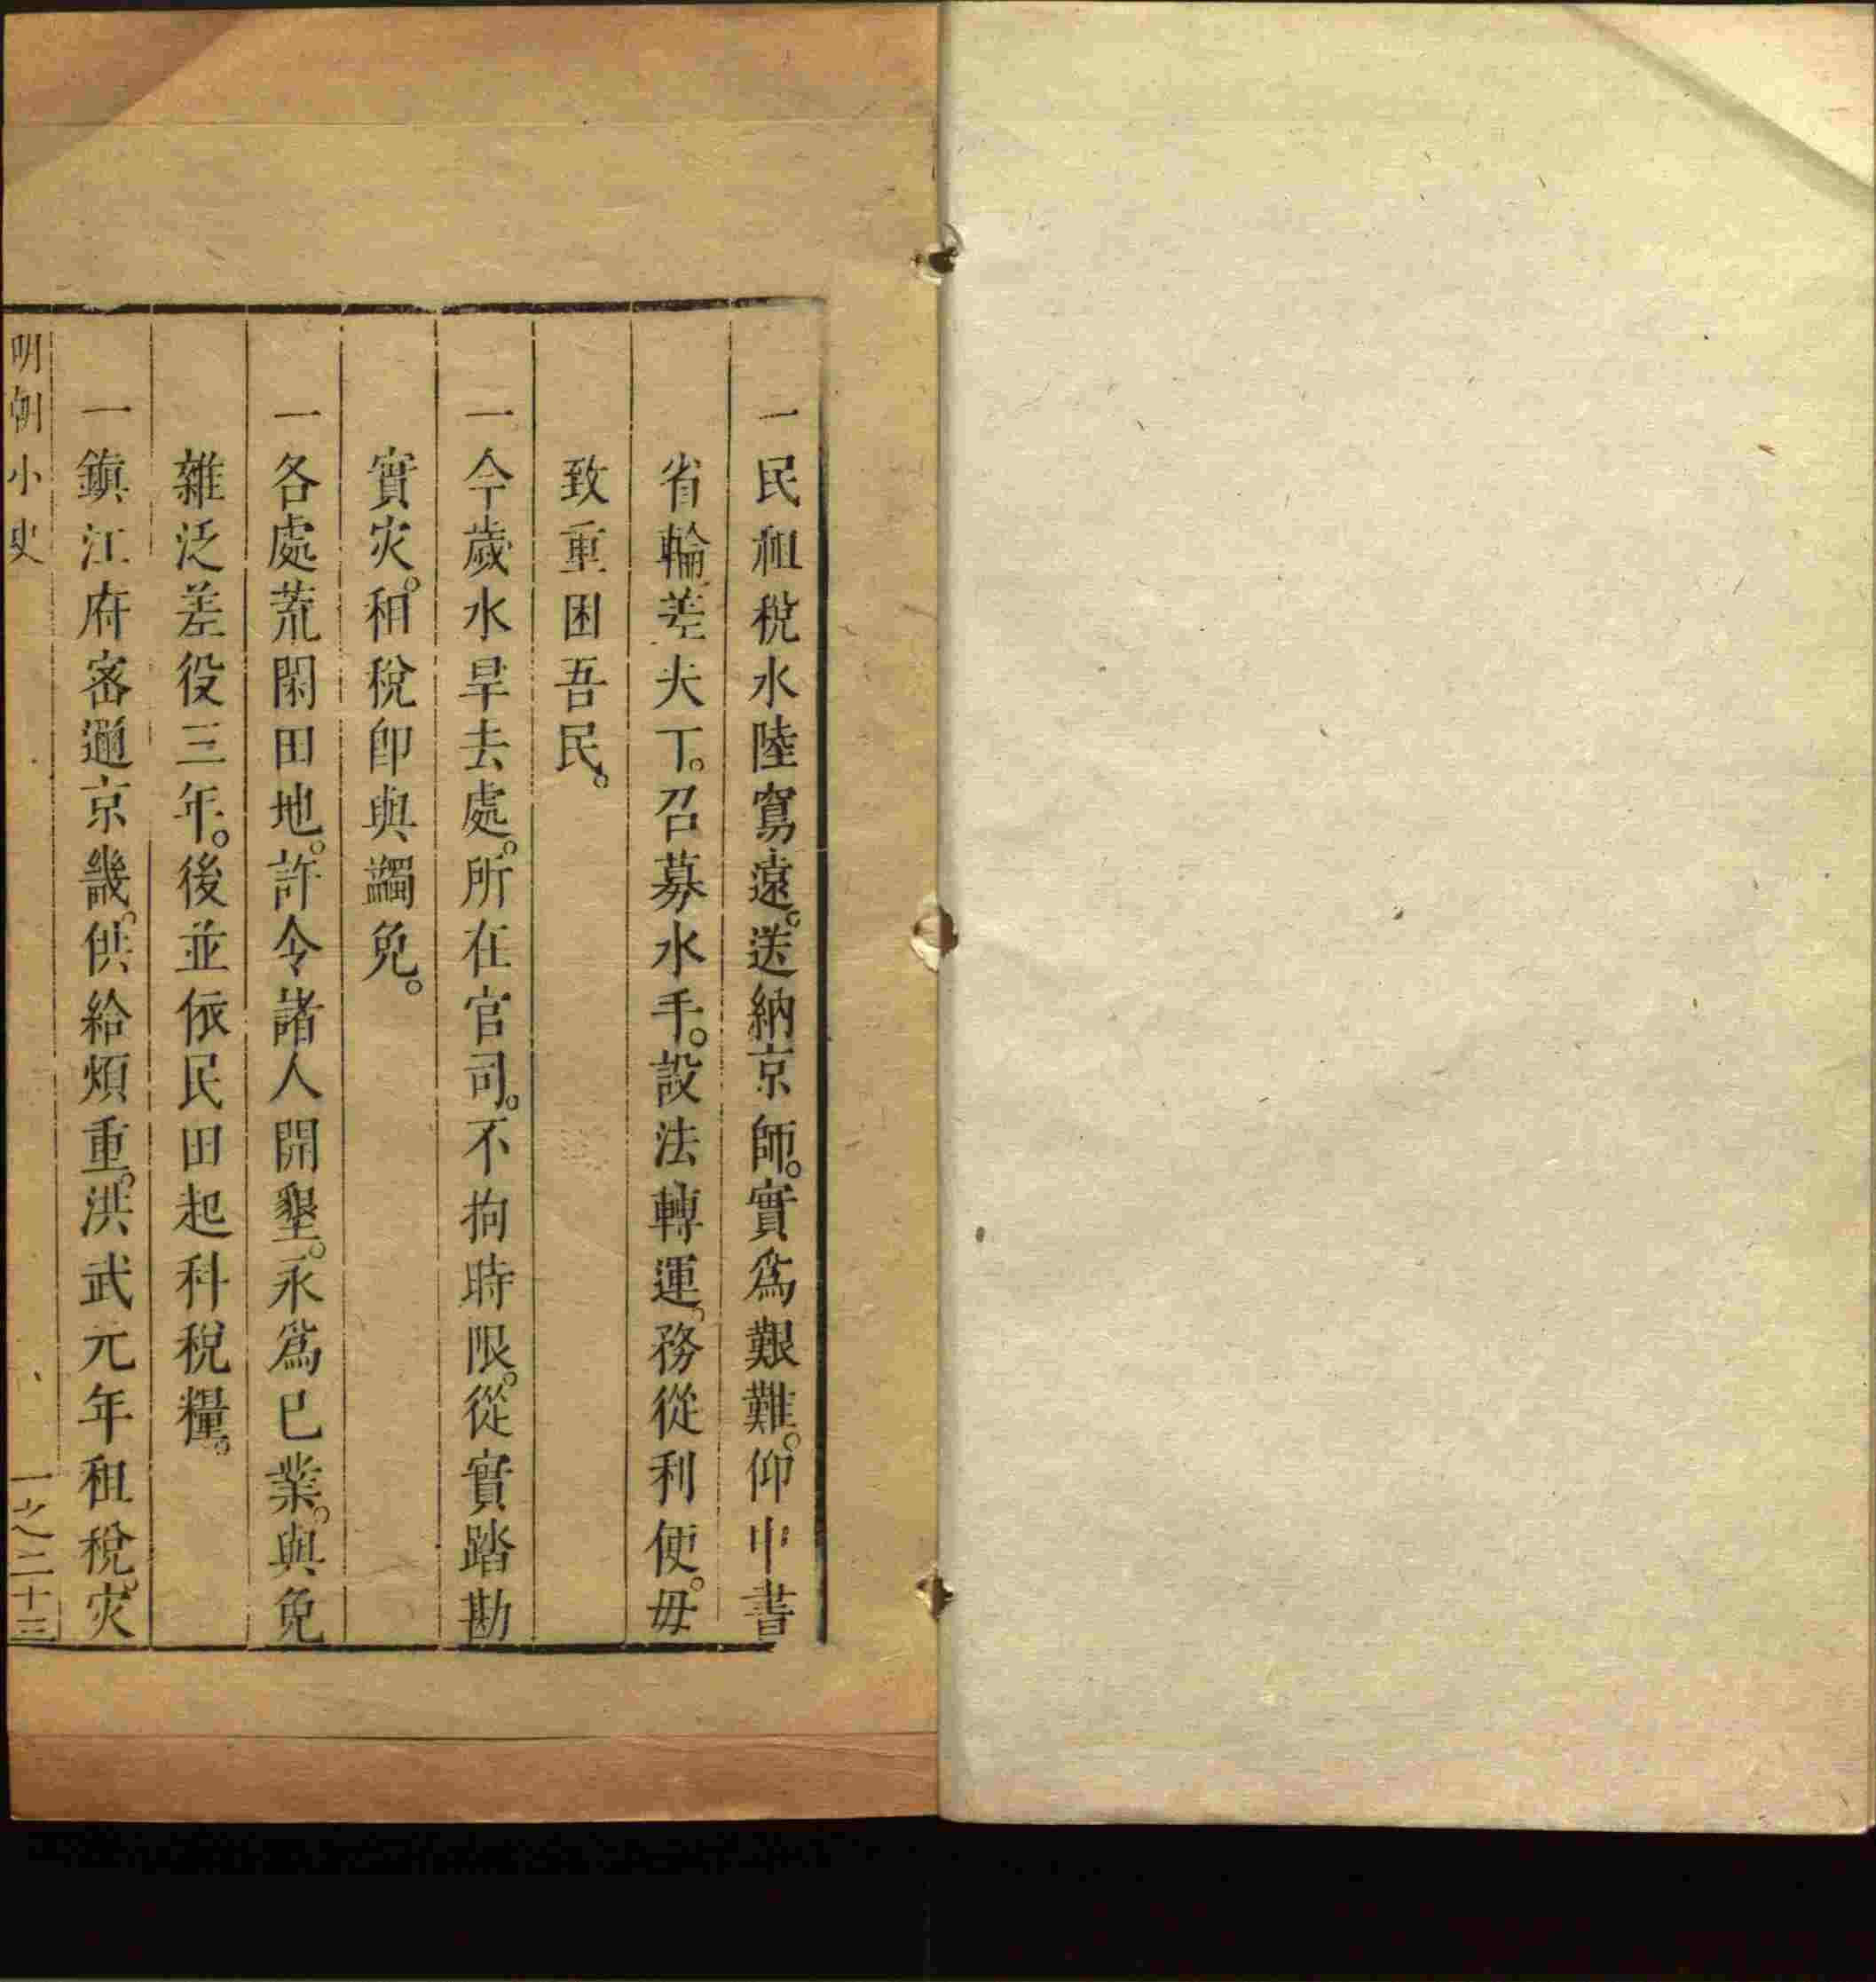 一民租稅水陸窵遠。送納京師。實爲艱難。仰中書
省輪差夫丁。召募水手。設法轉運。務從利便。毋
致重困吾民。
一今歲水旱去處。所在官司。不拘時限。從實踏勘
實灾。租稅卽與蠲免。
一各處荒閑田地。許令諸人開墾。永爲已業。與免
雜泛差役三年。後並依民田起科稅糧。
一鎮江府密邇京畿。供給煩重。洪武元年租稅。灾
明朝小史
一之二十三